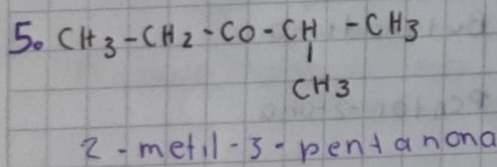 5. CH3-CH2-CO-CH-CH3
|
CH3
2-metil-3-pentanona